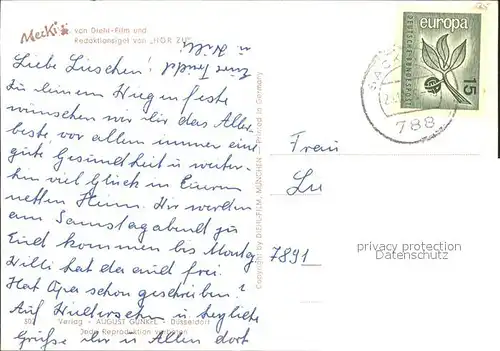 Mecki
von Diehl-Film und
Redaktionsigel von „HÖR ZU"
Liebe Lieschen!
Zu Deinem Wiegenfeste
wünschen wir dir das Aller-
beste, vor allem immer eine
gute Gesundheit u. weiter-
hin viel Glück in Eurem
netten Heim. Wir werden
am Samstagabend zu
Euch kommen bis Montag
Willi hat da auch frei.
Hat Opa schon geschrieben?
Auf Wiedersehen u. herzliche
Grüße ihr u. Allen dort
Eure
u. Willi
303 Verlag - AUGUST GUNKEL - Düsseldorf
Jede Reproduktion verboten
Copyright by DIEHL-FILM, MÜNCHEN Printed in Germany
europa
DEUTSCHE BUNDESPOST
15
788
Frau
Lu
7891
privacy protection
Datenschutz